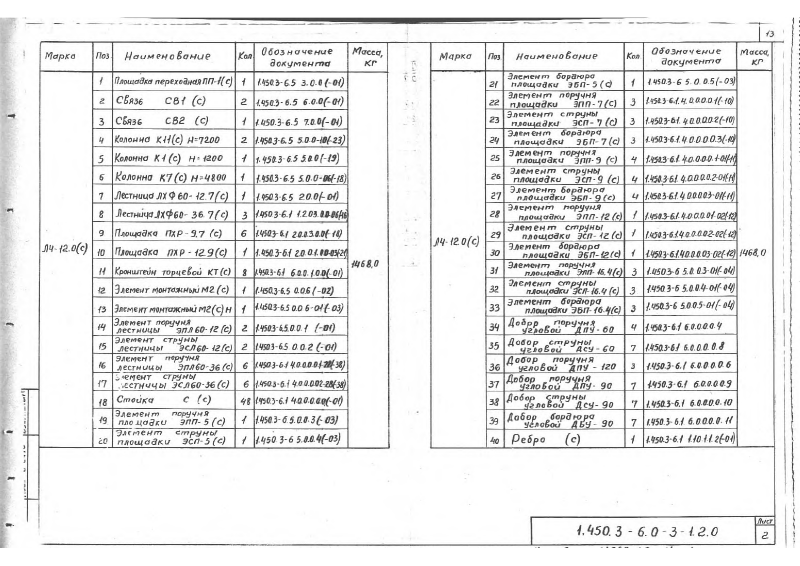 13
Марка Поз Наименование Кол. Обозначение документа Масса, кг
Л4-12.0(с) 1468,0
1 Площадка переходная ПП-1(с) 1 1.450.3-6.5 3.0.0(-01)
2 Связь СВ1 (с) 2 1.450.3-6.5 6.0.0(-01)
3 Связь СВ2 (с) 1 1.450.3-6.5 7.0.0(-01)
4 Колонна К11(с) Н=7200 2 1.450.3-6.5 5.0.0-10(-23)
5 Колонна К1(с) Н=1200 1 1.450.3-6.5 5.0.0(-19)
6 Колонна К7(с) Н=4800 1 1.450.3-6.5 5.0.0-06(-18)
7 Лестница ЛХФ60-12.7(с) 1 1.450.3-6.5 2.0.0(-01)
8 Лестница ЛХФ60-36.7(с) 3 1.450.3-6.1
9 Площадка ПХР-9.7(с) 6 1.450.3-6.1
10 Площадка ПХР-12.9(с) 1 1.450.3-6.1
11 Кронштейн торцевой КТ(с) 8 1.450.3-6.1 6.0.0.1.0.0(-01)
12 Элемент монтажный М2(с) 1 1.450.3-6.5 0.0.6(-02)
13 Элемент монтажный М2(с)Н 1 1.450.3-6.5 0.0.6-01(-03)
14 Элемент поручня
лестницы ЭПЛ60-12(с) 2 1.450.3-6.5 0.0.1 (-01)
15 Элемент струны
лестницы ЭСЛ60-12(с) 2 1.450.3-6.5 0.0.2(-01)
16 Элемент поручня
лестницы ЭПЛ60-36(с) 6 1.450.3-6.1
17 Элемент струны
лестницы ЭСЛ60-36(с) 6 1.450.3-6.1
18 Стойка С (с) 48 1.450.3-6.1
19 Элемент поручня
площадки ЭПП-5(с) 1 1.450.3-6.5 0.0.3(-03)
20 Элемент струны
площадки ЭСП-5(с) 1 1.450.3-6.5 0.0.4(-03)
Марка Поз Наименование Кол. Обозначение документа Масса, кг
Л4-12.0(с) 1468,0
21 Элемент бордюра
площадки ЭБП-5(с) 1 1.450.3-6.5 0.0.5(-03)
22 Элемент поручня
площадки ЭПП-7(с) 3 1.450.3-6.1.4.0.0.0.0.1(-10)
23 Элемент струны
площадки ЭСП-7(с) 3 1.450.3-6.1.4.0.0.0.0.2(-10)
24 Элемент бордюра
площадки ЭБП-7(с) 3 1.450.3-6.1.4.0.0.0.0.3(-10)
25 Элемент поручня
площадки ЭПП-9(с) 4
26 Элемент струны
площадки ЭСП-9(с) 4
27 Элемент бордюра
площадки ЭБП-9(с) 4
28 Элемент поручня
площадки ЭПП-12(с) 1
29 Элемент струны
площадки ЭСП-12(с) 1
30 Элемент бордюра
площадки ЭБП-12(с) 1
31 Элемент поручня
площадки ЭПП-16.4(с) 3 1.450.3-6.5.0.0.3-01(-04)
32 Элемент струны
площадки ЭСП-16.4(с) 3 1.450.3-6.5.0.0.4-01(-04)
33 Элемент бордюра
площадки ЭБП-16.4(с) 3 1.450.3-6.5.0.0.5-01(-04)
34 Добор поручня
угловой ДПУ-60 4 1.450.3-6.1 6.0.0.0.4
35 Добор струны
угловой ДСУ-60 7 1.450.3-6.1 6.0.0.0.8
36 Добор поручня
угловой ДПУ-120 3 1.450.3-6.1 6.0.0.0.6
37 Добор поручня
угловой ДПУ-90 7 1.450.3-6.1 6.0.0.0.9
38 Добор струны
угловой ДСУ-90 7 1.450.3-6.1 6.0.0.0.10
39 Добор бордюра
угловой ДБУ-90 7 1.450.3-6.1 6.0.0.0.11
40 Ребро (с) 1 1.450.3-6.1 1.10.1.1.2(-01)
1.450.3-6.0-3-1.2.0
Лист
2